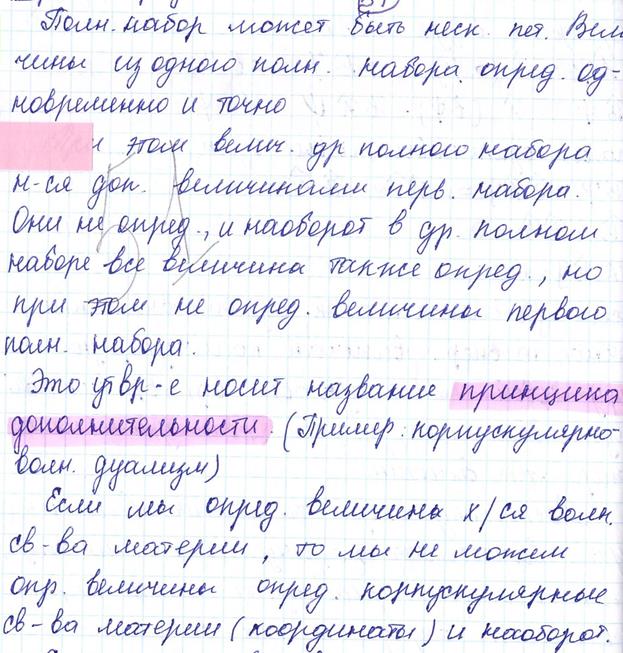 Полн. набор может быть неск. пет. Вели
чины из одного полн. набора опред. од-
новременно и точно
При этом велич. др полного набора
н-ся доп. величинами перв. набора.
Они не опред., и наоборот в др. полном
наборе все величина также опред., но
при этом не опред. величины первого
полн. набора.
Это утвр-е носит название принципа
дополнительности. (Пример: корпускулярно-
волн. дуализм)
Если мы опред. величины х/ся волн.
св-ва материи, то мы не можем
опр. величины опред. корпускулярные
св-ва материи (координаты) и наоборот.